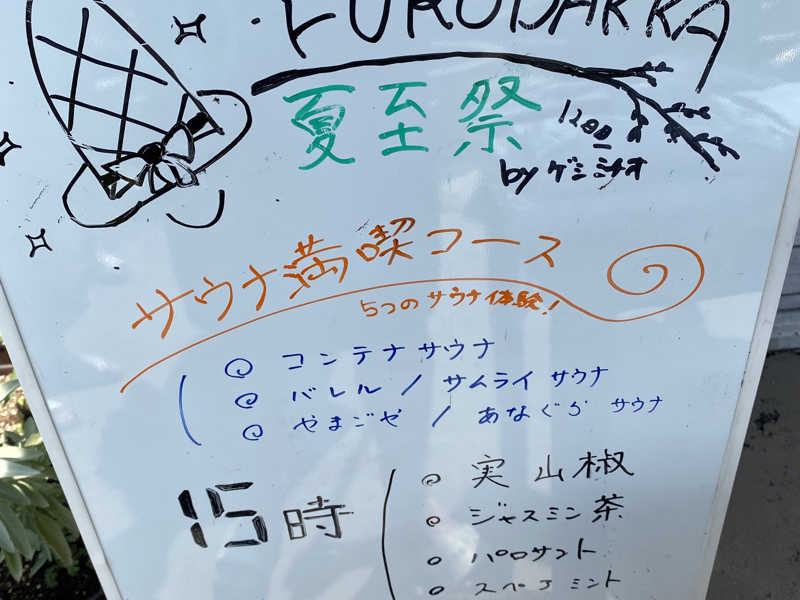 夏至祭
by ゲシミサオ
サウナ満喫コース
5つのサウナ体験!
コンテナサウナ
バレル / サムライサウナ
やまごや / あなぐらサウナ
15時
実山椒
ジャスミン茶
パロサント
スペアミント